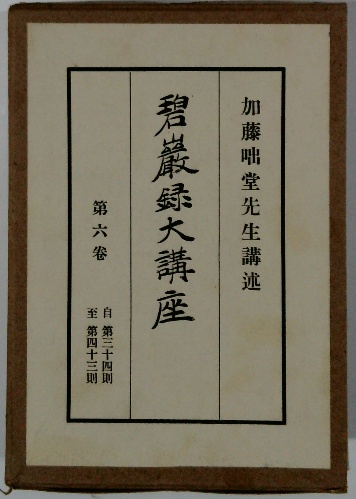 加藤咄堂先生講述
碧巖録大講座
第六卷
自 第三十四則
至 第四十三則